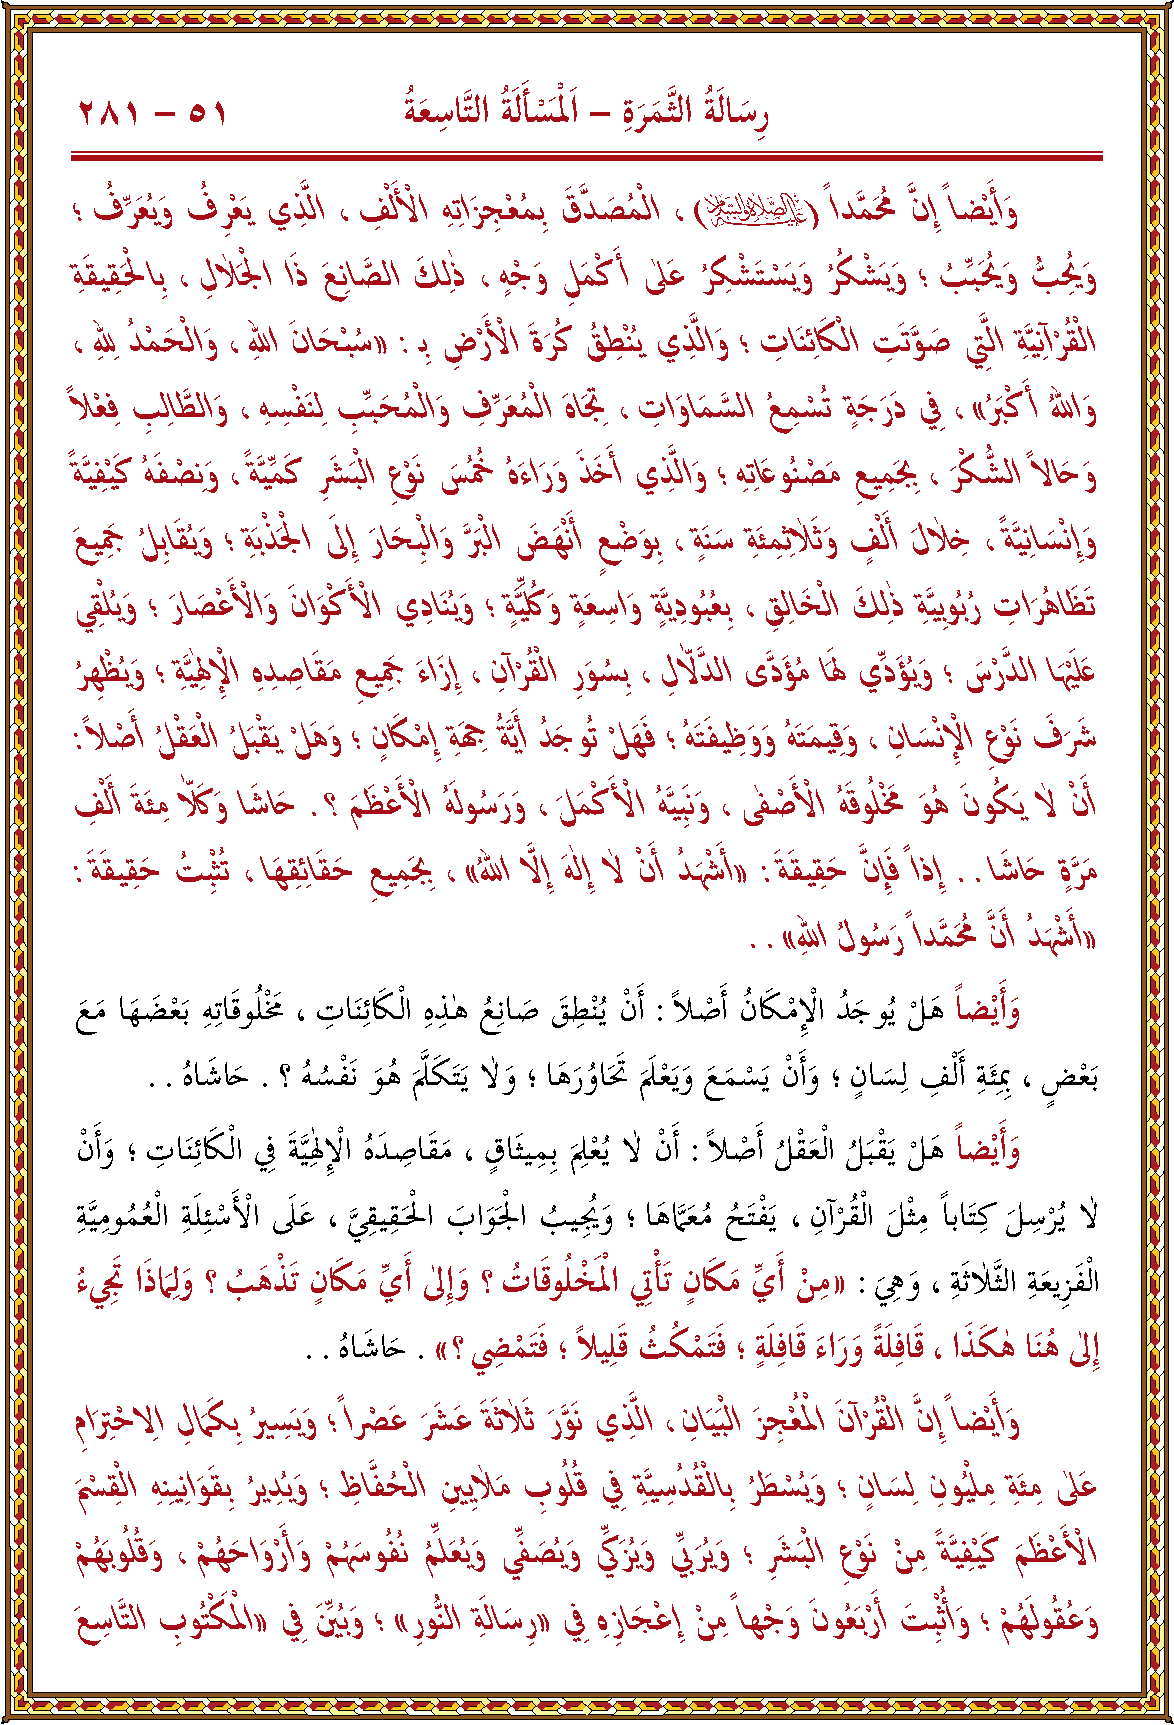 رِسَالَةُ الثَّمَرَةِ – اَلْمَسْأَلَةُ التَّاسِعَةُ ٥١ – ٢٨١
وَأَيْضاً إِنَّ مُحَمَّداً (عَلَيْهِ الصَّلَاةُ وَالسَّلَامُ) ، الْمُصَدَّقَ بِمُعْجِزَاتِهِ الْأَلْفِ ، الَّذِي يَعْرِفُ وَيُعَرِّفُ ؛
وَيُحِبُّ وَيُحَبِّبُ ؛ وَيَشْكُرُ وَيَسْتَشْكِرُ عَلٰى أَكْمَلِ وَجْهٍ ، ذٰلِكَ الصَّانِعَ ذَا الْجَلَالِ ، بِالْحَقِيقَةِ
الْقُرْآنِيَّةِ الَّتِي صَوَّتَتِ الْكَائِنَاتِ ؛ وَالَّذِي يُنْطِقُ كُرَةَ الْأَرْضِ بِـ : «سُبْحَانَ اللهِ ، وَالْحَمْدُ لِلهِ ،
وَاللهُ أَكْبَرُ» ، فِي دَرَجَةٍ تُسْمِعُ السَّمَاوَاتِ ، تِجَاهَ الْمُعَرِّفِ وَالْمُحَبِّبِ لِنَفْسِهِ ، وَالطَّالِبِ فِعْلاً
وَحَالاً الشُّكْرَ ، بِجَمِيعِ مَصْنُوعَاتِهِ ؛ وَالَّذِي أَخَذَ وَرَاءَهُ خُمُسَ نَوْعِ الْبَشَرِ كَمِّيَّةً ، وَنِصْفَهُ كَيْفِيَّةً
وَإِنْسَانِيَّةً ، خِلَالَ أَلْفٍ وَثَلَاثِمِئَةِ سَنَةٍ ، بِوَضْعٍ أَنْهَضَ الْبَرَّ وَالْبِحَارَ إِلَى الْجَذْبَةِ ؛ وَيُقَابِلُ جَمِيعَ
تَظَاهُرَاتِ رُبُوبِيَّةِ ذٰلِكَ الْخَالِقِ ، بِعُبُودِيَّةٍ وَاسِعَةٍ وَكُلِّيَّةٍ ؛ وَيُنَادِي الْأَكْوَانَ وَالْأَعْصَارَ ؛ وَيُلْقِي
عَلَيْهَا الدَّرْسَ ؛ وَيُؤَدِّي لَهَا مُؤَدَّى الدَّلَّالِ ، بِسُوَرِ الْقُرْآنِ ، إِزَاءَ جَمِيعِ مَقَاصِدِهِ الْإِلٰهِيَّةِ ؛ وَيُظْهِرُ
شَرَفَ نَوْعِ الْإِنْسَانِ ، وَقِيمَتَهُ وَوَظِيفَتَهُ ؛ فَهَلْ تُوجَدُ أَيَّةُ جِهَةِ إِمْكَانٍ ؛ وَهَلْ يَقْبَلُ الْعَقْلُ أَصْلاً :
أَنْ لَا يَكُونَ هُوَ مَخْلُوقَهُ الْأَصْفٰى ، وَنَبِيَّهُ الْأَكْمَلَ ، وَرَسُولَهُ الْأَعْظَمَ ؟ . حَاشَا وَكَلَّا مِئَةَ أَلْفِ
مَرَّةٍ حَاشَا . . إِذاً فَإِنَّ حَقِيقَةَ : «أَشْهَدُ أَنْ لَا إِلٰهَ إِلَّا اللهُ» ، بِجَمِيعِ حَقَائِقِهَا ، تُثْبِتُ حَقِيقَةَ :
«أَشْهَدُ أَنَّ مُحَمَّداً رَسُولُ اللهِ» . .
وَأَيْضاً هَلْ يُوجَدُ الْإِمْكَانُ أَصْلاً : أَنْ يُنْطِقَ صَانِعُ هٰذِهِ الْكَائِنَاتِ ، مَخْلُوقَاتِهِ بَعْضَهَا مَعَ
بَعْضٍ ، بِمِئَةِ أَلْفِ لِسَانٍ ؛ وَأَنْ يَسْمَعَ وَيَعْلَمَ تَحَاوُرَهَا ؛ وَلَا يَتَكَلَّمَ هُوَ نَفْسُهُ ؟ . حَاشَاهُ . .
وَأَيْضاً هَلْ يَقْبَلُ الْعَقْلُ أَصْلاً : أَنْ لَا يُعْلِمَ بِمِيثَاقٍ ، مَقَاصِدَهُ الْإِلٰهِيَّةَ فِي الْكَائِنَاتِ ؛ وَأَنْ
لَا يُرْسِلَ كِتَاباً مِثْلَ الْقُرْآنِ ، يَفْتَحُ مُعَمَّاهَا ؛ وَيُجِيبُ الْجَوَابَ الْحَقِيقِيَّ ، عَلَى الْأَسْئِلَةِ الْعُمُومِيَّةِ
الْفَزِيعَةِ الثَّلَاثَةِ ، وَهِيَ : «مِنْ أَيِّ مَكَانٍ تَأْتِي الْمَخْلُوقَاتُ ؟ وَإِلٰى أَيِّ مَكَانٍ تَذْهَبُ ؟ وَلِمَاذَا تَجِيءُ
إِلٰى هُنَا هٰكَذَا ، قَافِلَةً وَرَاءَ قَافِلَةٍ ؛ فَتَمْكُثُ قَلِيلاً ؛ فَتَمْضِي ؟» . حَاشَاهُ . .
وَأَيْضاً إِنَّ الْقُرْآنَ الْمُعْجِزَ الْبَيَانِ ، الَّذِي نَوَّرَ ثَلَاثَةَ عَشَرَ عَصْراً ؛ وَيَسِيرُ بِكَمَالِ الِاحْتِرَامِ
عَلٰى مِئَةِ مِلْيُونِ لِسَانٍ ؛ وَيُسْطَرُ بِالْقُدُسِيَّةِ فِي قُلُوبِ مَلَايِينِ الْحُفَّاظِ ؛ وَيُدِيرُ بِقَوَانِينِهِ الْقِسْمَ
الْأَعْظَمَ كَيْفِيَّةً مِنْ نَوْعِ الْبَشَرِ ؛ وَيُرَبِّي وَيُزَكِّي وَيُصَفِّي وَيُعَلِّمُ نُفُوسَهُمْ وَأَرْوَاحَهُمْ ، وَقُلُوبَهُمْ
وَعُقُولَهُمْ ؛ وَأُثْبِتَ أَرْبَعُونَ وَجْهاً مِنْ إِعْجَازِهِ فِي «رِسَالَةِ النُّورِ» ؛ وَبُيِّنَ فِي «الْمَكْتُوبِ التَّاسِعَ